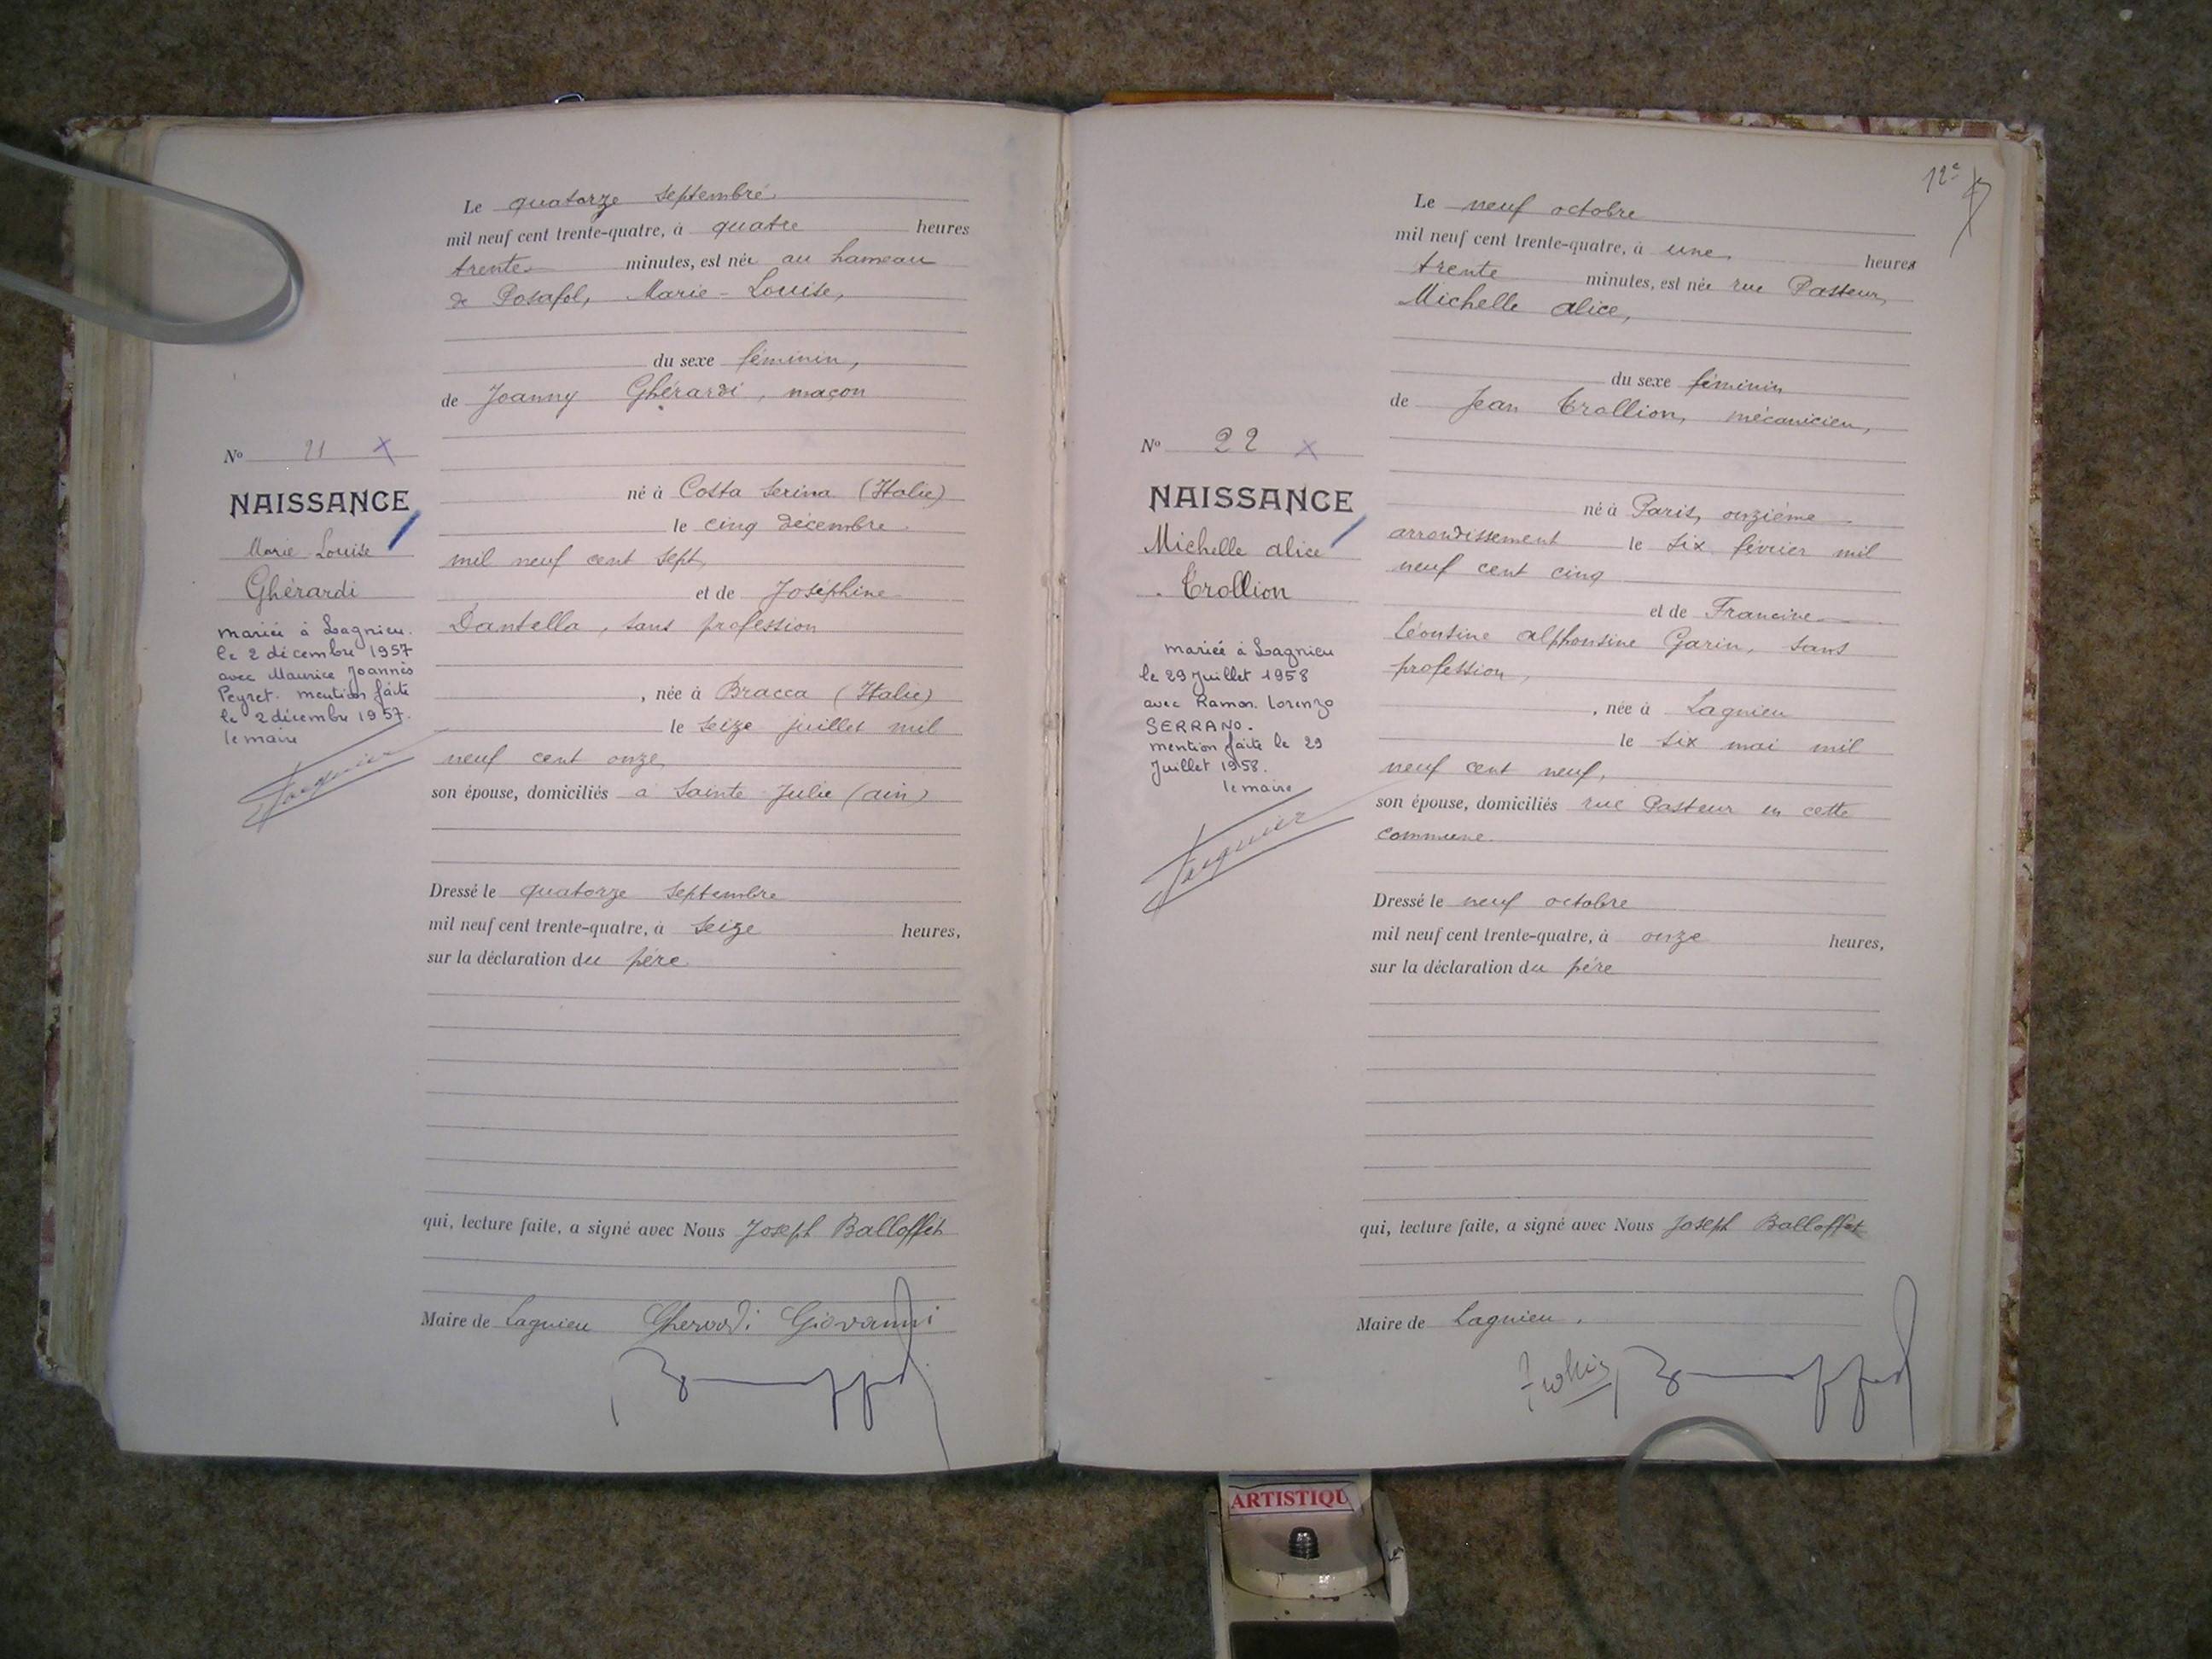 Le quatorze septembre
mil neuf cent trente-quatre, à quatre heures
trente minutes, est née au hameau
de Posafol, Marie-Louise,
du sexe féminin,
de Joanny Ghérardi, maçon
né à Costa Serina (Italie)
le cinq décembre
mil neuf cent sept,
et de Joséphine
Dantella, sans profession
, née à Bracca (Italie)
le seize juillet mil
neuf cent onze,
son épouse, domiciliés à Sainte Julie (ain)
Dressé le quatorze septembre
mil neuf cent trente-quatre, à seize heures,
sur la déclaration du père
qui, lecture faite, a signé avec Nous Joseph Balloffet
Maire de Lagnieu Gherardi Giovanni
No 21 X
NAISSANCE
Marie-Louise
Ghérardi
mariée à Lagnieu.
le 2 décembre 1957
avec Maurice Joannès
Peyret. mention faite
le 2 décembre 1957.
le maire
12e
Le neuf octobre
mil neuf cent trente-quatre, à une heure
trente minutes, est née rue Pasteur,
Michelle alice,
du sexe féminin
de Jean Trollion, mécanicien,
né à Paris, onzième
arrondissement le six février mil
neuf cent cinq
et de Francine
Léontine alphonsine Garin, sans
profession,
, née à Lagnieu
le six mai mil
neuf cent neuf,
son épouse, domiciliés rue Pasteur en cette
commune.
Dressé le neuf octobre
mil neuf cent trente-quatre, à onze heures,
sur la déclaration du père
qui, lecture faite, a signé avec Nous Joseph Balloffet
Maire de Lagnieu.
No 22 X
NAISSANCE
Michelle alice
Trollion
mariée à Lagnieu
le 29 Juillet 1958
avec Ramon Lorenzo
SERRANO.
mention faite le 29
Juillet 1958.
le maire
ARTISTIQU